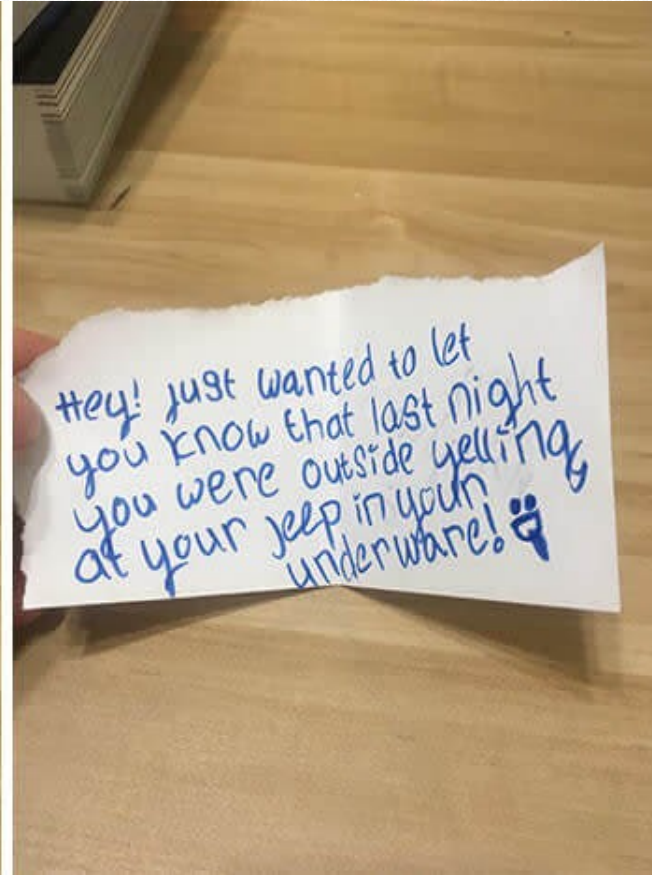 Hey! just wanted to let
you know that last night
you were outside yelling
at your jeep in your
underware!